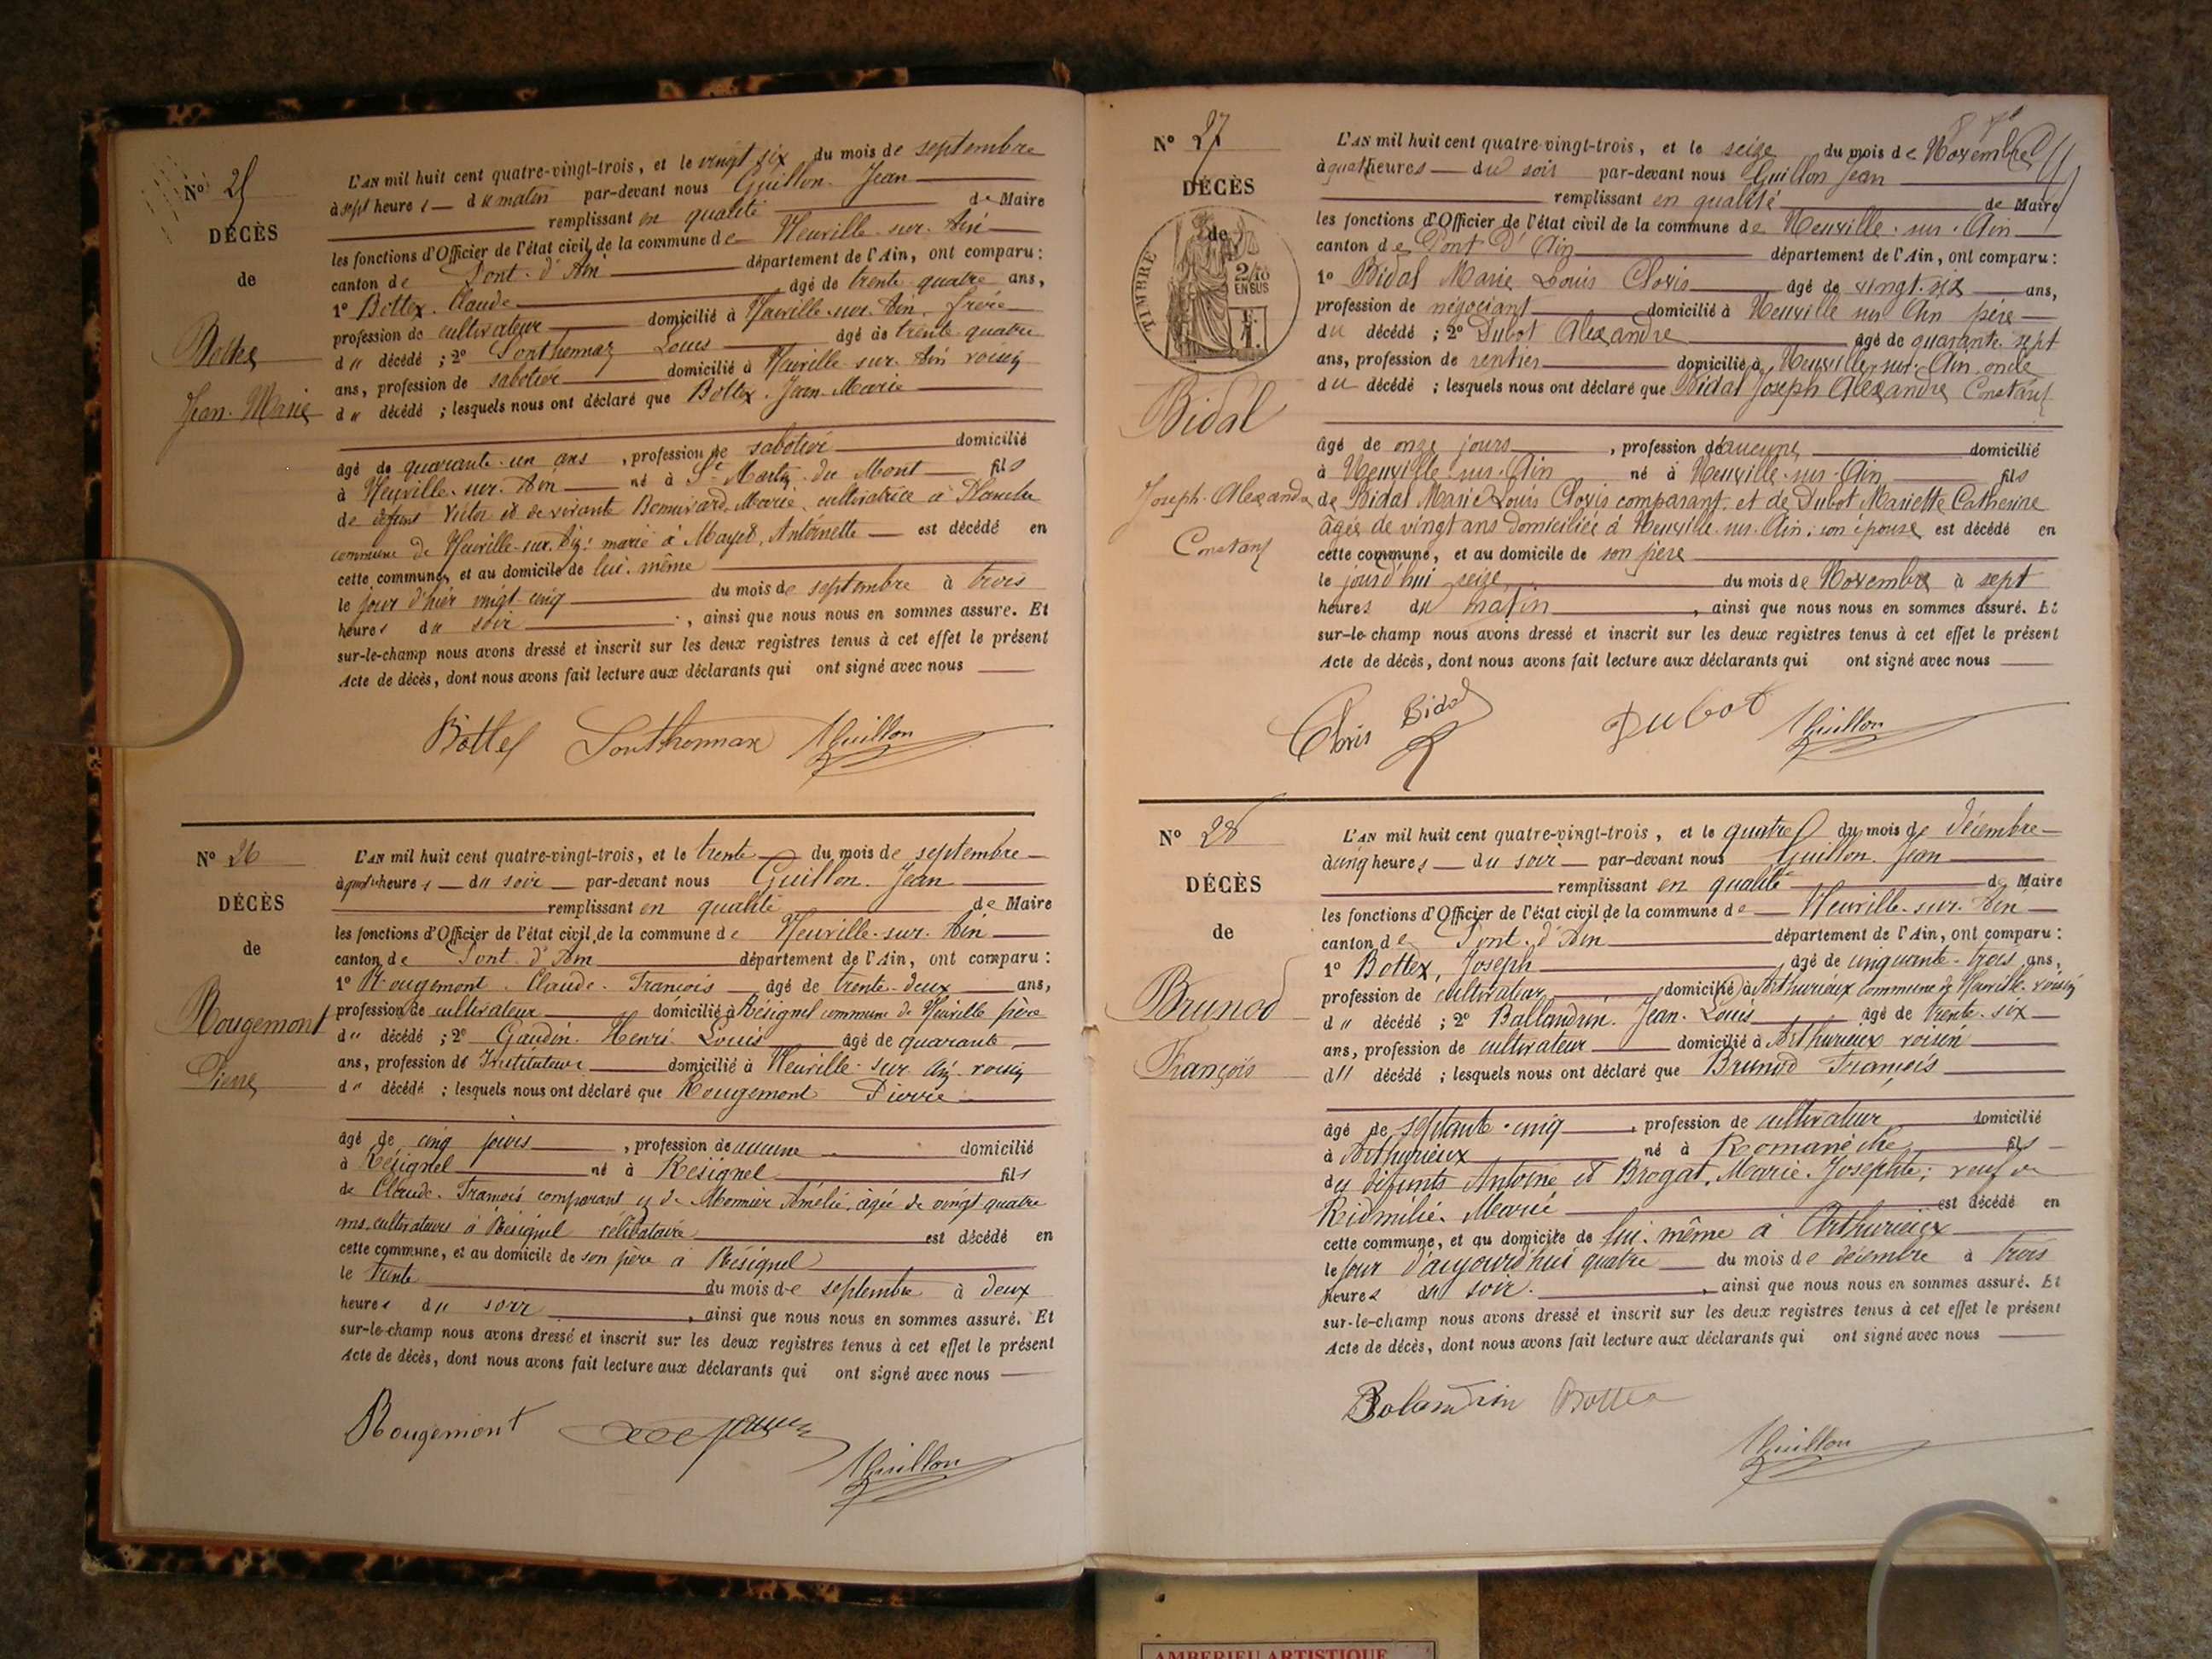 N° 25
DÉCÈS
de
Bottex
Jean-Marie
L'AN mil huit cent quatre-vingt-trois, et le vingt six du mois de septembre
à sept heures du matin par-devant nous Guillon Jean
remplissant en qualité de Maire
les fonctions d'Officier de l'état civil de la commune de Neuville-sur-Ain
canton de Pont-d'Ain département de l'Ain, ont comparu :
1° Bottex Claude âgé de trente quatre ans,
profession de cultivateur domicilié à Neuville-sur-Ain, frère
du décédé ; 2° Louis âgé de trente quatre
ans, profession de sabotier domicilié à Neuville-sur-Ain voisin
du décédé ; lesquels nous ont déclaré que Bottex Jean-Marie
âgé de quarante-un ans, profession de sabotier domicilié
à Neuville-sur-Ain né à St Martin-du-Mont fils
de défunt Victor et de vivante Marie, cultivatrice à Planche
commune de Neuville-sur-Ain ; marié à Mayet, Antoinette est décédé en
cette commune, et au domicile de lui-même
le jour d'hier vingt-cinq du mois de septembre à trois
heures du soir, ainsi que nous nous en sommes assuré. Et
sur-le-champ nous avons dressé et inscrit sur les deux registres tenus à cet effet le présent
Acte de décès, dont nous avons fait lecture aux déclarants qui ont signé avec nous
Bottex Guillon
N° 26
DÉCÈS
de
Rougemont
Pierre
L'AN mil huit cent quatre-vingt-trois, et le trente du mois de septembre
à quatre heures du soir par-devant nous Guillon Jean
remplissant en qualité de Maire
les fonctions d'Officier de l'état civil de la commune de Neuville-sur-Ain
canton de Pont-d'Ain département de l'Ain, ont comparu :
1° Rougemont Claude-François âgé de trente-deux ans,
profession de cultivateur domicilié à Résignel commune de Neuville père
du décédé ; 2° Gaudin Henri Louis âgé de quarante
ans, profession de Instituteur domicilié à Neuville-sur-Ain voisin
du décédé ; lesquels nous ont déclaré que Rougemont Pierre
âgé de cinq jours, profession de aucune domicilié
à Résignel né à Résignel fils
de Claude-François comparant et de Monnier Amélie, âgée de vingt-quatre
ans, cultivateurs à Résignel célibataire est décédé en
cette commune, et au domicile de son père à Résignel
le trente du mois de septembre à deux
heures du soir, ainsi que nous nous en sommes assuré. Et
sur-le-champ nous avons dressé et inscrit sur les deux registres tenus à cet effet le présent
Acte de décès, dont nous avons fait lecture aux déclarants qui ont signé avec nous
Rougemont Guillon
N° 27
DÉCÈS
de
TIMBRE
2/10
EN SUS
Bidal
Joseph-Alexandre
Constant
L'AN mil huit cent quatre-vingt-trois, et le seize du mois de Novembre
à quatre heures du soir par-devant nous Guillon Jean
remplissant en qualité de Maire
les fonctions d'Officier de l'état civil de la commune de Neuville-sur-Ain
canton de Pont-d'Ain département de l'Ain, ont comparu :
1° Bidal Marie Louis Clovis âgé de vingt-six ans,
profession de négociant domicilié à Neuville sur Ain père
du décédé ; 2° Dubot Alexandre âgé de quarante-sept
ans, profession de rentier domicilié à Neuville-sur-Ain oncle
du décédé ; lesquels nous ont déclaré que Bidal Joseph Alexandre Constant
âgé de onze jours, profession de aucune domicilié
à Neuville-sur-Ain né à Neuville-sur-Ain fils
de Bidal Marie Louis Clovis comparant et de Dubot Mariette Catherine
âgée de vingt ans domiciliée à Neuville-sur-Ain, son épouse est décédé en
cette commune, et au domicile de son père
le jourd'hui seize du mois de Novembre à sept
heures du matin, ainsi que nous nous en sommes assuré. Et
sur-le-champ nous avons dressé et inscrit sur les deux registres tenus à cet effet le présent
Acte de décès, dont nous avons fait lecture aux déclarants qui ont signé avec nous
Clovis Bidal Dubot Guillon
N° 28
DÉCÈS
de
Brunod
François
L'AN mil huit cent quatre-vingt-trois, et le quatre du mois de Décembre
à cinq heures du soir par-devant nous Guillon Jean
remplissant en qualité de Maire
les fonctions d'Officier de l'état civil de la commune de Neuville-sur-Ain
canton de Pont-d'Ain département de l'Ain, ont comparu :
1° Bottex, Joseph âgé de cinquante-trois ans,
profession de cultivateur domicilié à Arthurieux commune de Neuville voisin
du décédé ; 2° Ballandrin Jean-Louis âgé de trente-six
ans, profession de cultivateur domicilié à Arthurieux voisin
du décédé ; lesquels nous ont déclaré que Brunod François
âgé de septante-cinq, profession de cultivateur domicilié
à Arthurieux né à Romanèche fils
des défunts Antoine et Brogat, Marie-Josephte ; veuf de
Marie est décédé en
cette commune, et au domicile de lui-même à Arthurieux
le jour d'aujourd'hui quatre du mois de décembre à trois
heures du soir, ainsi que nous nous en sommes assuré. Et
sur-le-champ nous avons dressé et inscrit sur les deux registres tenus à cet effet le présent
Acte de décès, dont nous avons fait lecture aux déclarants qui ont signé avec nous
Balandrin Bottex
Guillon
AMBERIEU ARTISTIQUE